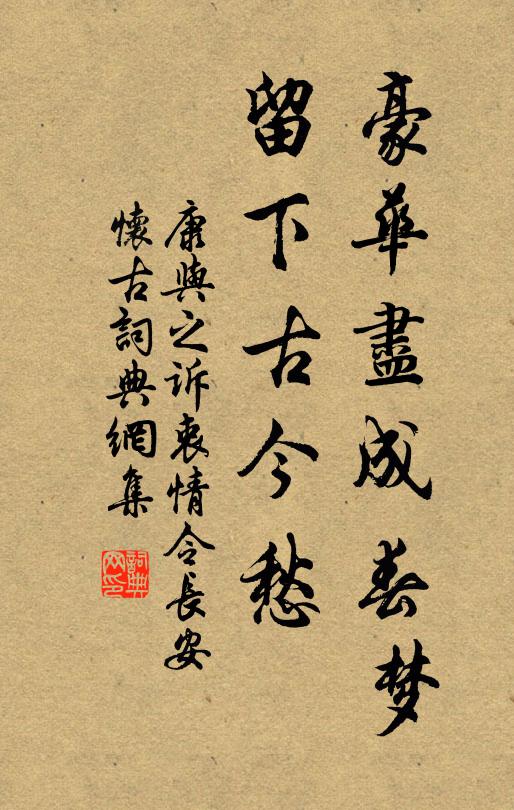 豪華盡成春梦
留下古今愁
康與之訴衷情令長安
懷古詞典網集
詞典
网印